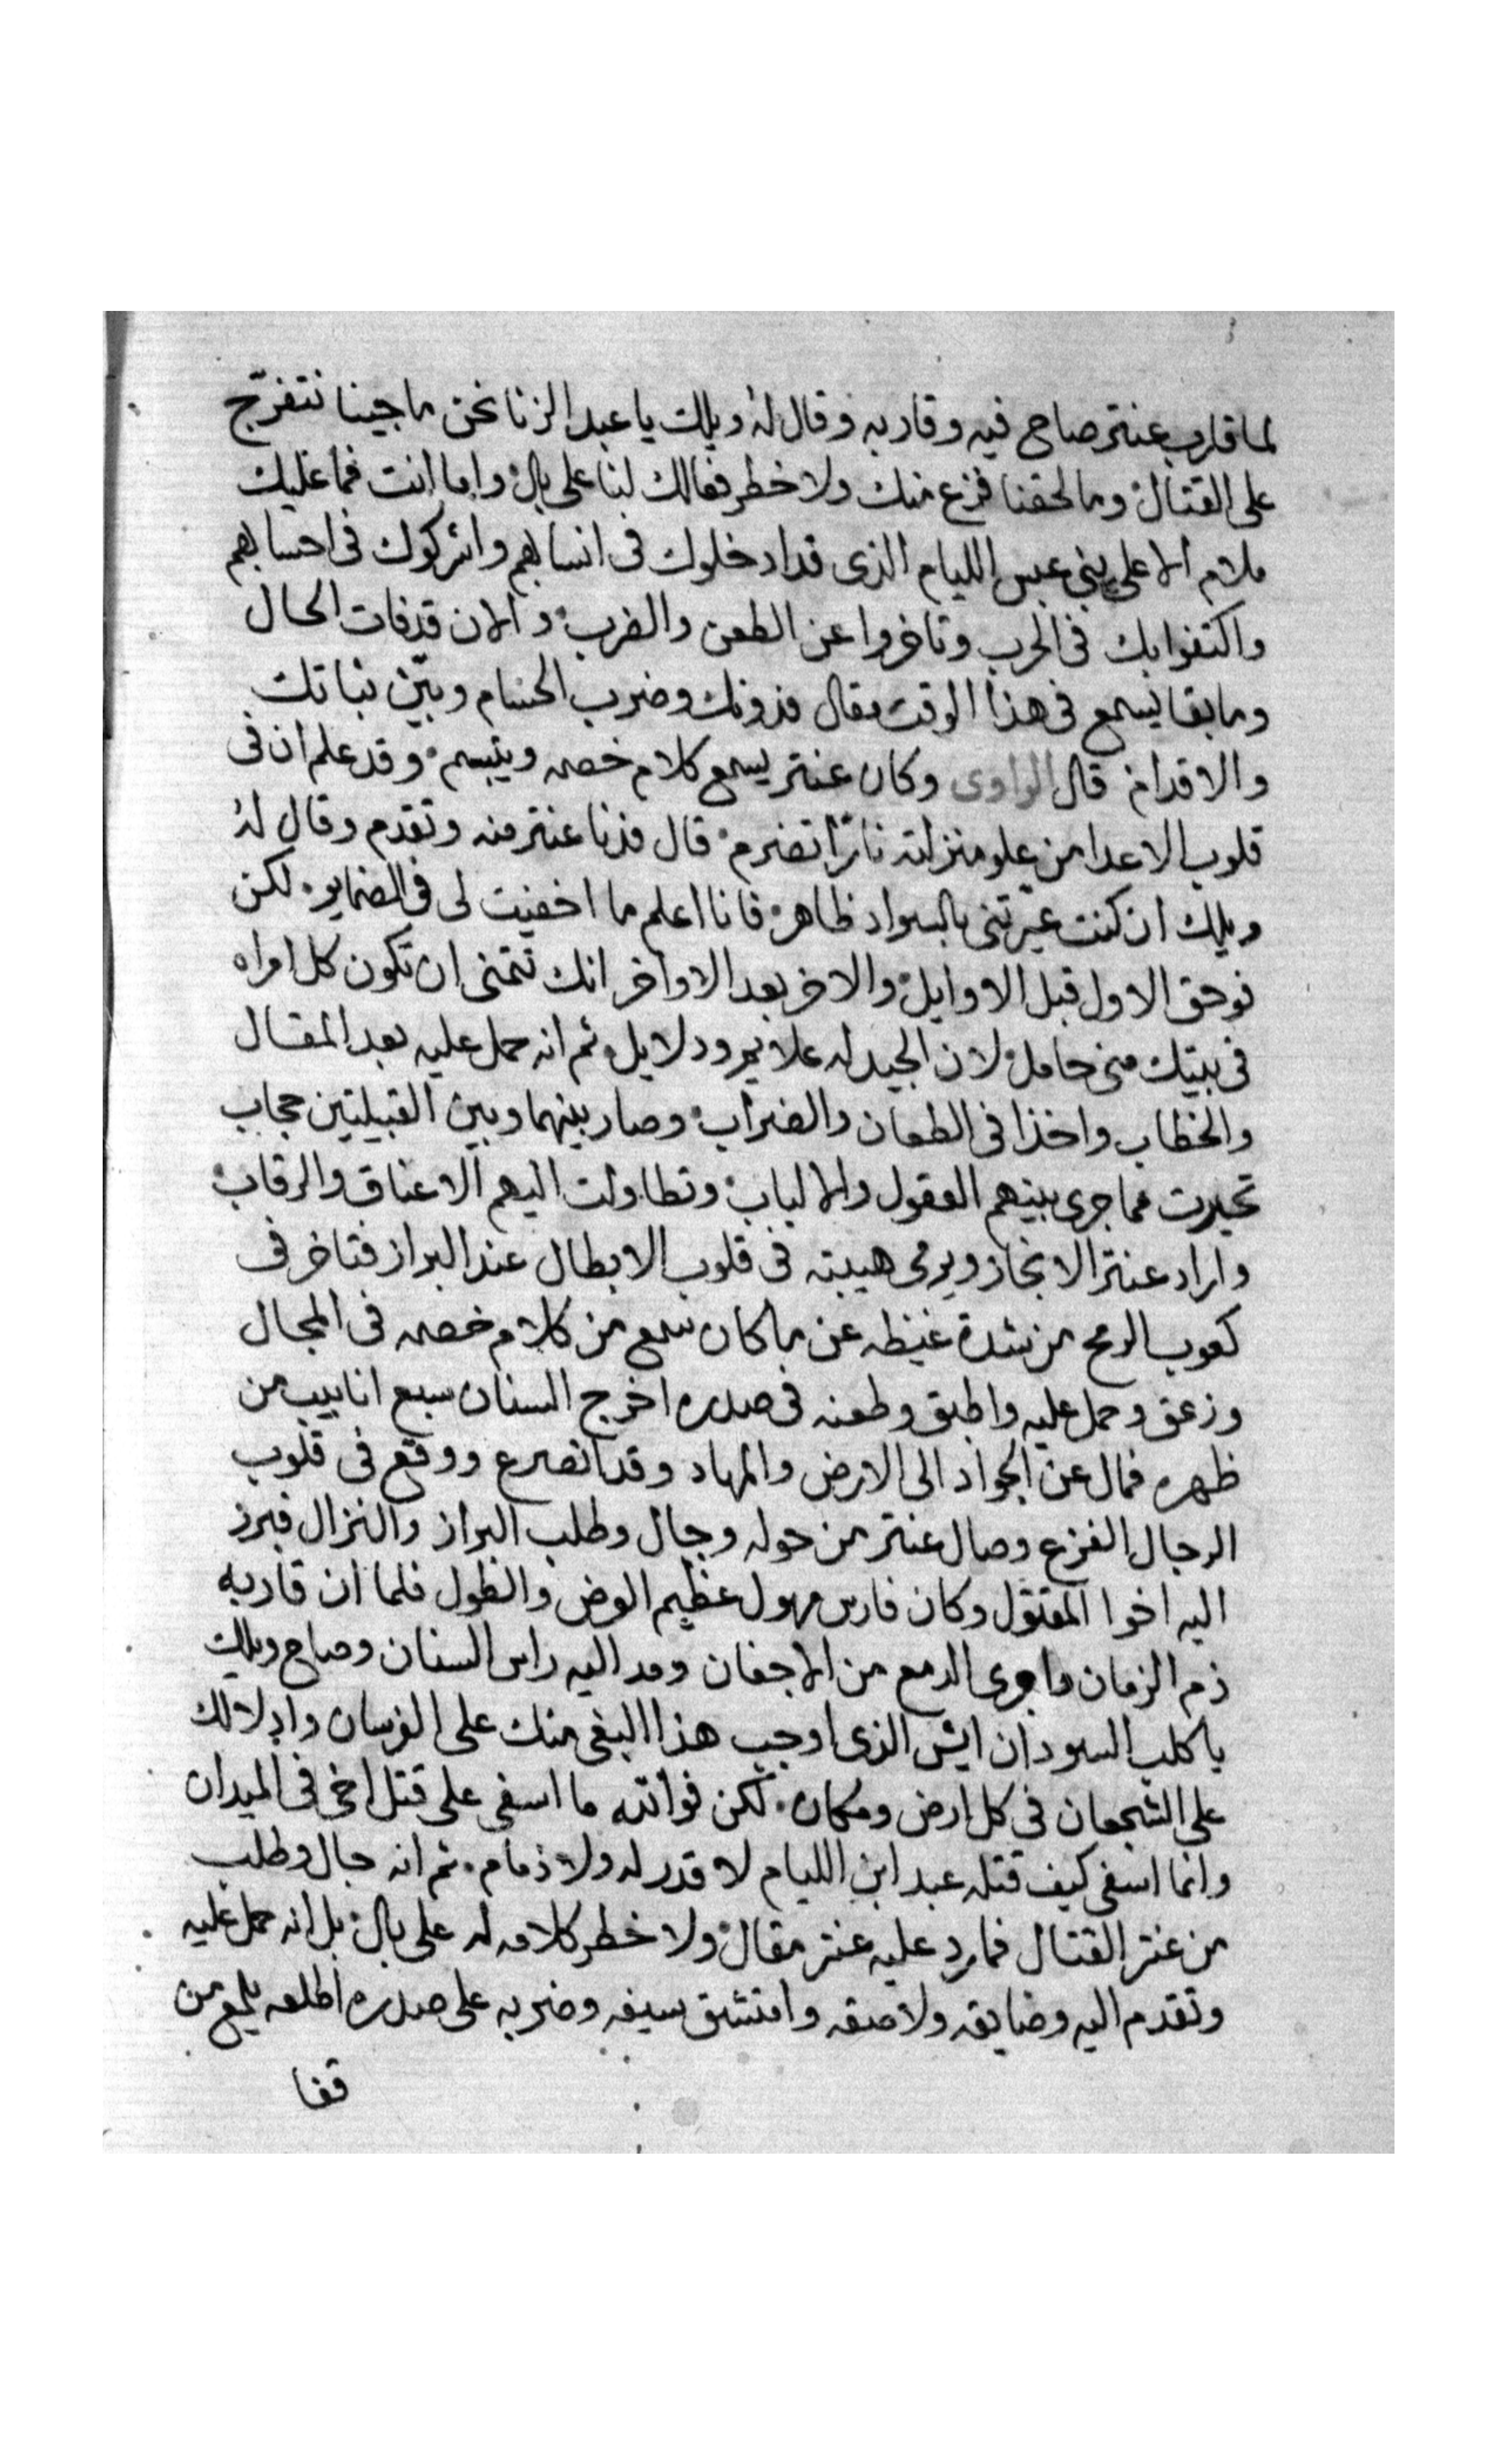 لما قارب عنتر صاح فيه وقاربه وقال له ويلك يا عبد الزنا نحن ما جينا نتفرّج
على القتال وما لحقنا فزع منك ولا خطر فعالك لنا على بال واما انت فما عليك
ملام الا على بني عبس الليام الذى قد ادخلوك فى انسابهم واشركوك فى احسابهم
واكتفوا بك فى الحرب وتاخروا عن الطعن والضرب والان قد فات الحال
وما بقا يسمع فى هذا الوقت مقال فدونك وضرب الحسام وبيّن ثباتك
والاقدام قال الراوى وكان عنتر يسمع كلام خصمه ويتبسم وقد علم ان فى
قلوب الاعدا من علو منزلته نارًا تضرم قال فدنا عنتر منه وتقدم وقال له
ويلك ان كنت عيّرتنى بالسواد ظاهر فانا اعلم ما اخفيت لى فى الضماير لكن
فوحق الاول قبل الاوايل والاخر بعد الاواخر انك تتمنى ان تكون كل امراه
فى بيتك منى حامل لان الجيد له علايم ودلايل ثم انه حمل عليه بعد المقال
والخطاب واخذا فى الطعان والضراب وصار بينهما وبين القبيلتين حجاب
تحيرت مما جرى بينهم العقول والالباب وتطاولت اليهم الاعناق والرقاب
واراد عنتر الانجاز ويرمى هيبته فى قلوب الابطال عند البراز فتاخر فى
كعوب الرمح من شدة غيظه عن ما كان سمع من كلام خصمه فى المجال
وزعق وحمل عليه واطبق وطعنه فى صدره اخرج السنان سبع انابيب من
ظهره فمال عن الجواد الى الارض والمهاد وقد انصرع ووقع فى قلوب
الرجال الفزع وصال عنتر من حوله وجال وطلب البراز والنزال فبرز
اليه اخوا المقتول وكان فارس مهول عظيم العرض والطول فلما ان قاربه
ذم الزمان واجرى الدمع من الاجفان ومد اليه راس السنان وصاح ويلك
يا كلب السودان ايش الذى اوجب هذا البغى منك على الفرسان وادلالك
على الشجعان فى كل ارض ومكان لكن فوالله ما اسفى على قتل اخى فى الميدان
وانما اسفى كيف قتله عبد ابن الليام لا قدر له ولا ذمام ثم انه جال وطلب
من عنتر القتال فما رد عليه عنتر مقال ولا خطر كلامه له على بال بل انه حمل عليه
وتقدم اليه وضايقه ولاصقه وامتشق سيفه وضربه على صدره اطلعه يلمع من
قفا